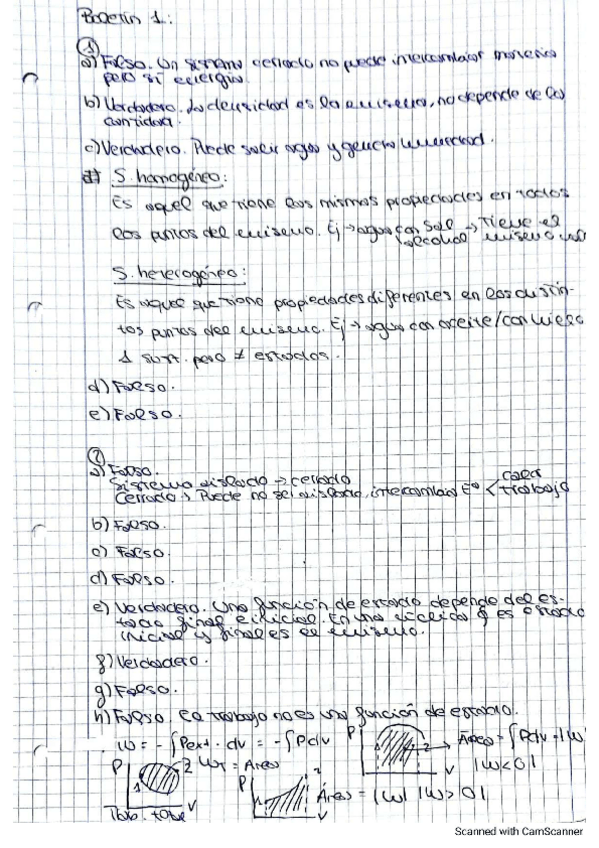 Boletín 1:
①
a) Falso. Un sistema cerrado no puede intercambiar materia
pero sí energía.
b) Verdadero. La densidad es la misma, no depende de la
cantidad.
c) Verdadero. Puede salir agua y
S. homogéneo:
Es aquel que tiene las mismas propiedades en todos
los puntos del mismo. Ej → agua con sal → Tiene el
alcohol mismo
S. heterogéneo:
Es aquel que tiene propiedades diferentes en los distin-
tos puntos del mismo. Ej → agua con aceite/con hielo
1 sust. pero ≠ estados.
d) Falso.
e) Falso.
②
a) Falso.
Sistema aislado → cerrado
Cerrado → Puede no ser aislado, intercambia Eª < calor
trabajo
b) Falso.
c) Falso.
d) Falso.
e) Verdadero. Una función de estado depende del es-
tado final e inicial. En una cíclica el estado
inicial y final es el mismo.
f) Verdadero.
g) Falso.
h) Falso. El trabajo no es una función de estado.
W = - ∫Pext · dv = - ∫Pdv
P 1 2 V
Wt = Área
P 1 2 V
Área = |W| |W>0|
P 1 2 V
Área = ∫Pdv = |W
|W<0|
Scanned with CamScanner